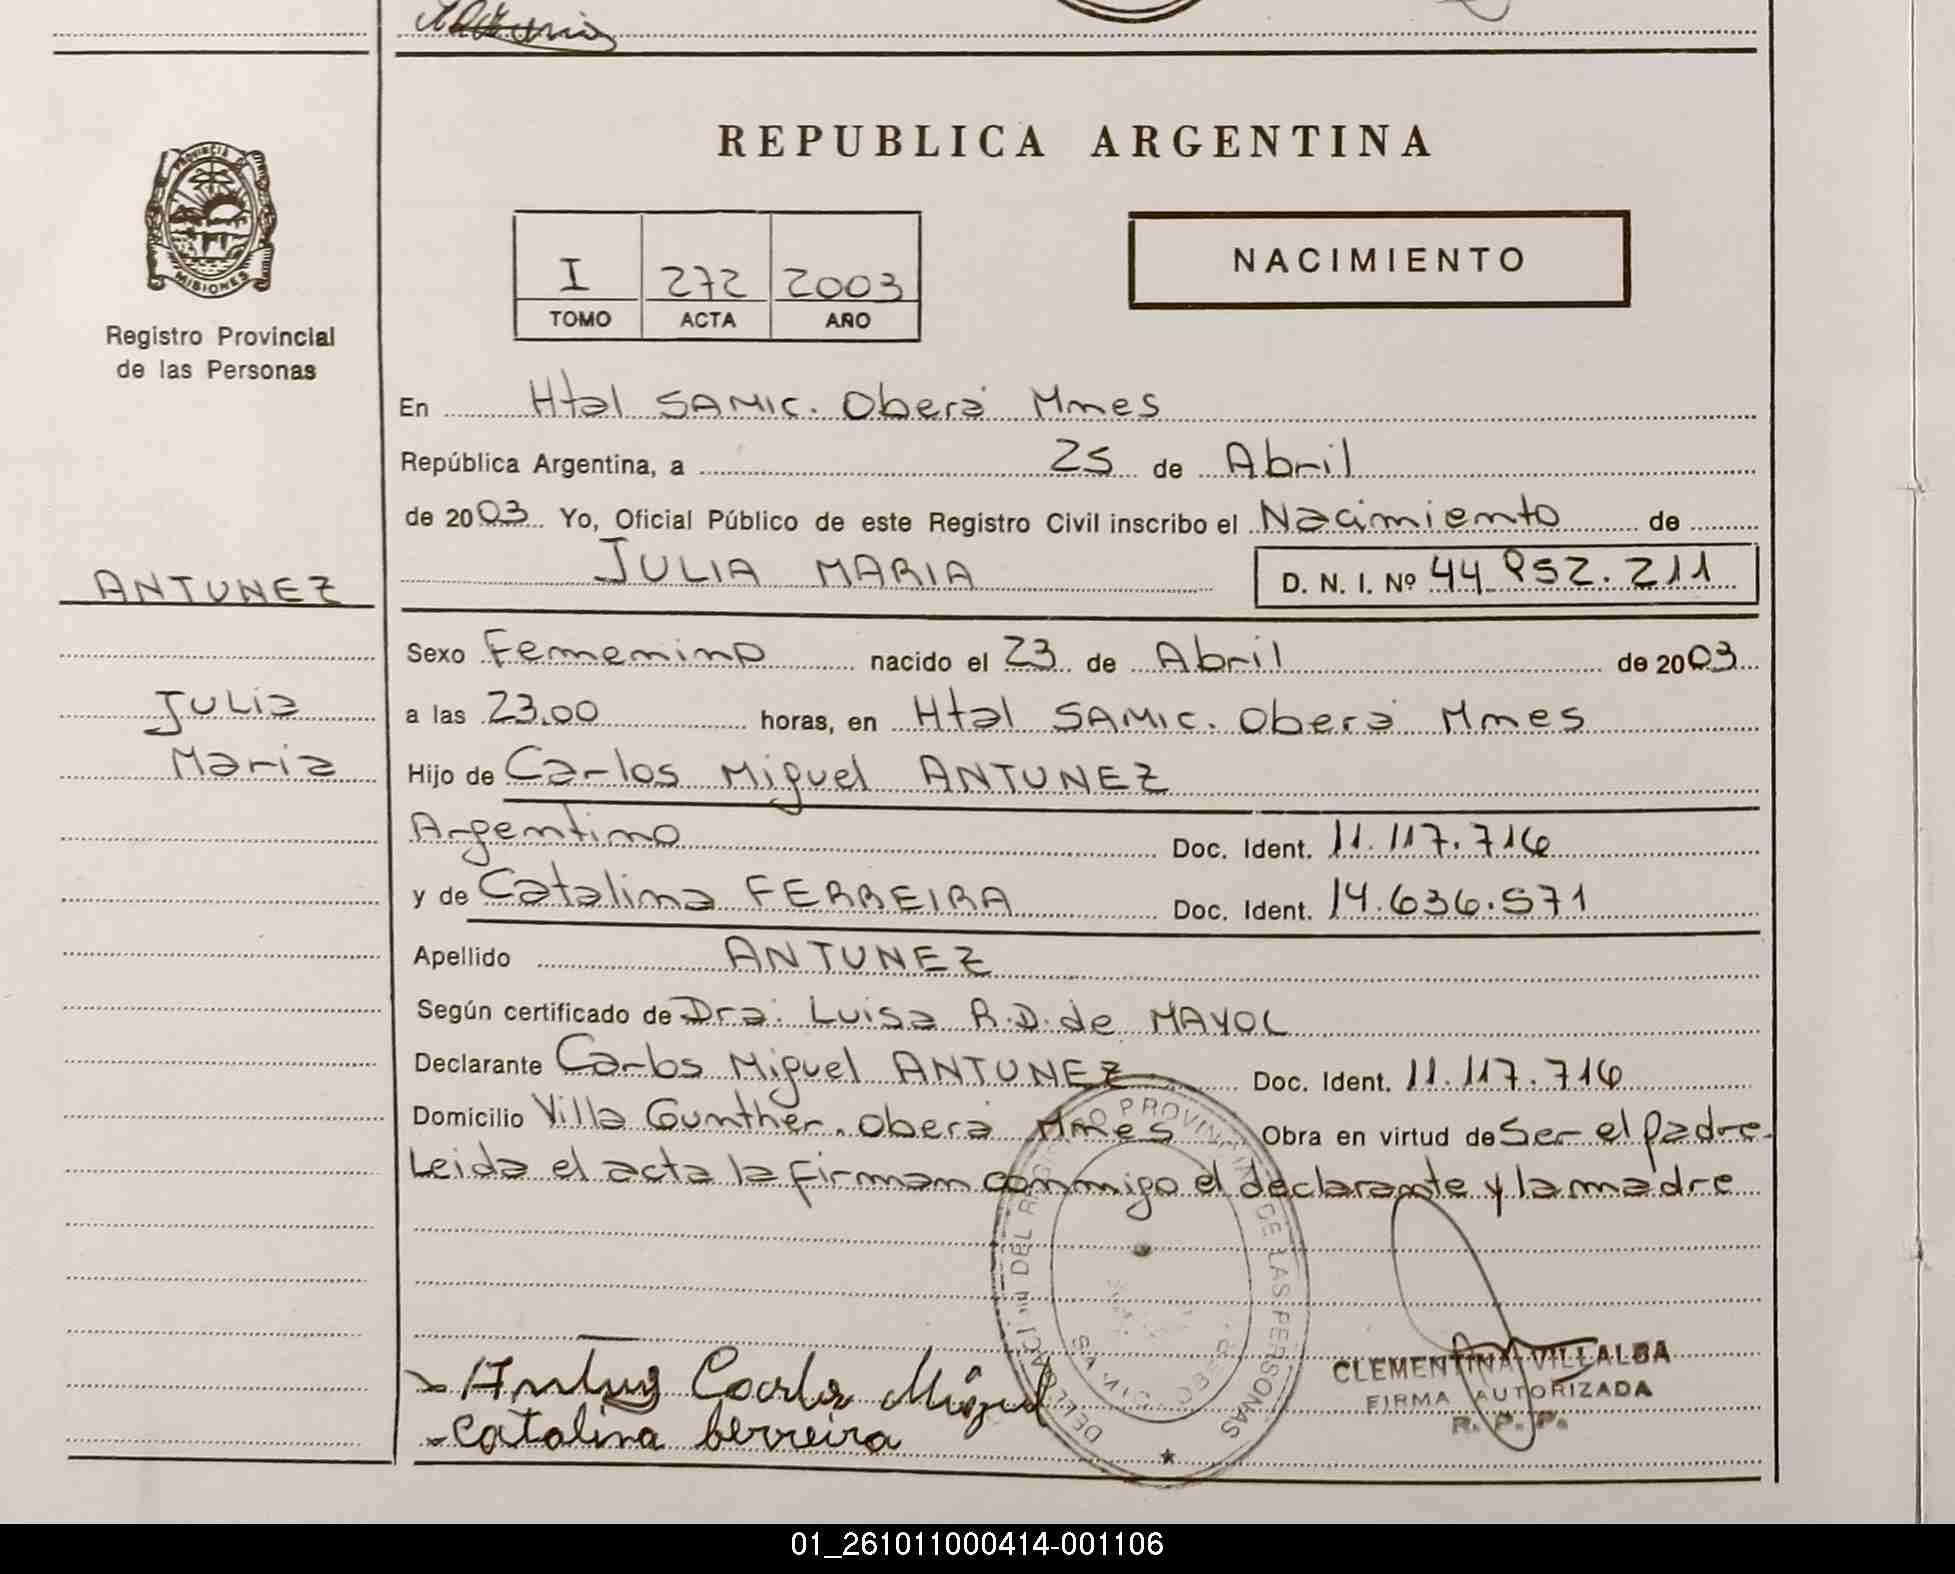 REPUBLICA ARGENTINA
PROVINCIA DE
MISIONES
Registro Provincial
de las Personas
I 272 2003
TOMO ACTA AÑO
NACIMIENTO
En Htal SAMIC. Oberá Mnes
República Argentina, a 25 de Abril
de 2003 Yo, Oficial Público de este Registro Civil inscribo el Nacimiento de
ANTUNEZ
JULIA MARIA D. N. I. Nº 44.952.211
Sexo Femenino nacido el 23 de Abril de 2003
Julia
a las 23.00 horas, en Htal SAMIC. Oberá Mnes
Maria
Hijo de Carlos Miguel ANTUNEZ
Argentino Doc. Ident. 11.117.716
y de Catalina FERREIRA Doc. Ident. 14.636.571
Apellido ANTUNEZ
Según certificado de Dra. Luisa R.D. de MAYOL
Declarante Carlos Miguel ANTUNEZ Doc. Ident. 11.117.716
Domicilio Villa Gunther. Oberá Mnes Obra en virtud de Ser el padre.
Leida el acta la firman conmigo el declarante y la madre
DEL REGISTRO PROVINCIAL DE LAS PERSONAS
CLEMENTINA VILLALBA
FIRMA AUTORIZADA
R. P. P.
Carlos Miguel
Catalina ferreira
01_261011000414-001106